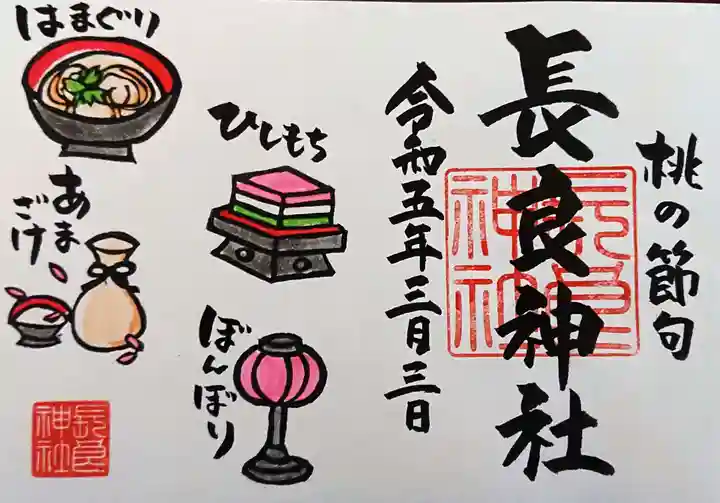 桃の節句
長良神社
令和五年三月三日
長良
神社
はまぐり
ひしもち
あま
ざけ
ぼんぼり
長良
神社